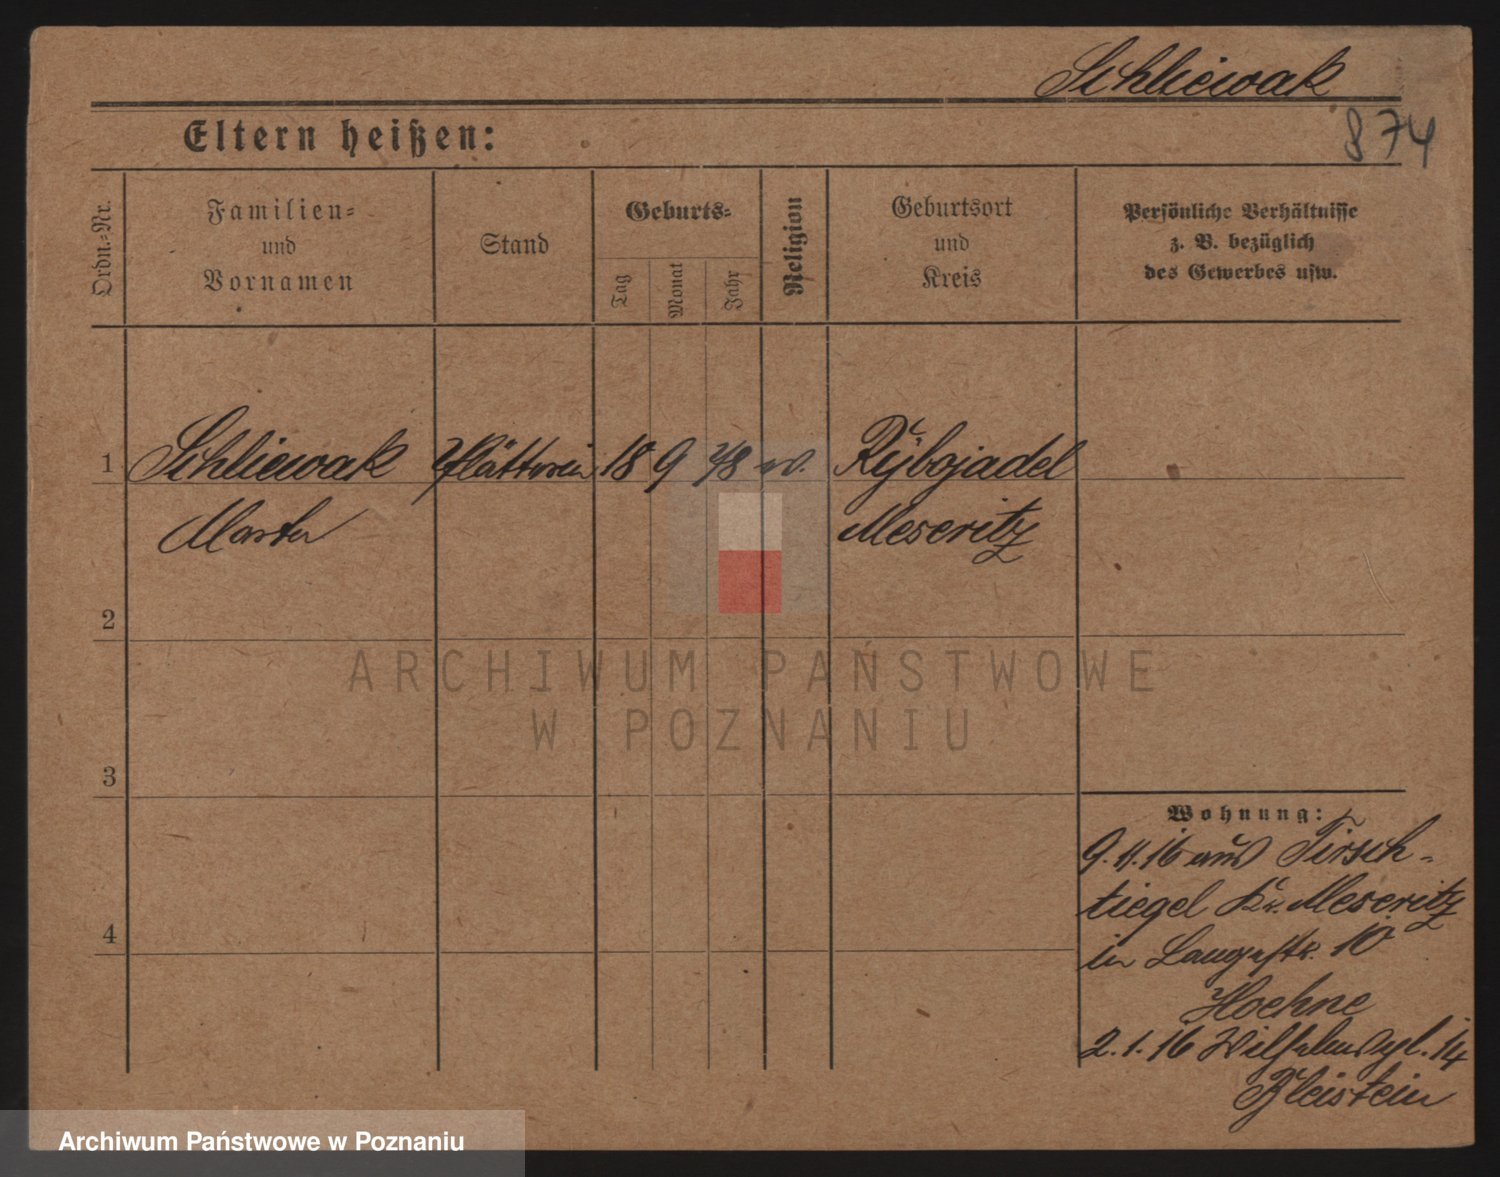 Schliewak
874
Eltern heißen:
Ordn.=Nr.
Familien=
und
Vornamen
Stand
Geburts=
Tag
Monat
Jahr
Religion
Geburtsort
und
Kreis
Persönliche Verhältnisse
z. B. bezüglich
des Gewerbes usw.
1 Schliewak Plätterin 18 9 78 ev. Rybojadel
Meseritz
2
3
4
Wohnung:
9. 11. 16 aus Tirsch-
tiegel Kr. Meseritz
in Langestr. 10
Hoehne
2. 1. 16 Wilhelmspl. 14
Bleistein
ARCHIWUM PAŃSTWOWE
W POZNANIU
Archiwum Państwowe w Poznaniu